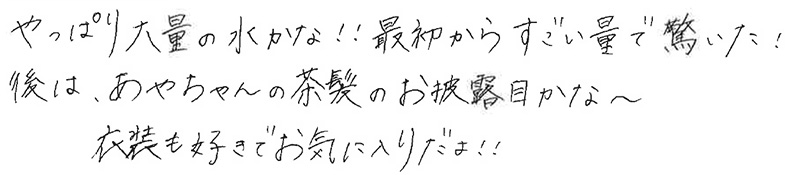 やっぱり大量の水かな!!最初からすごい量で驚いた!
後は、あやちゃんの茶髪のお披露目かな～
衣装も好きでお気に入りだよ!!